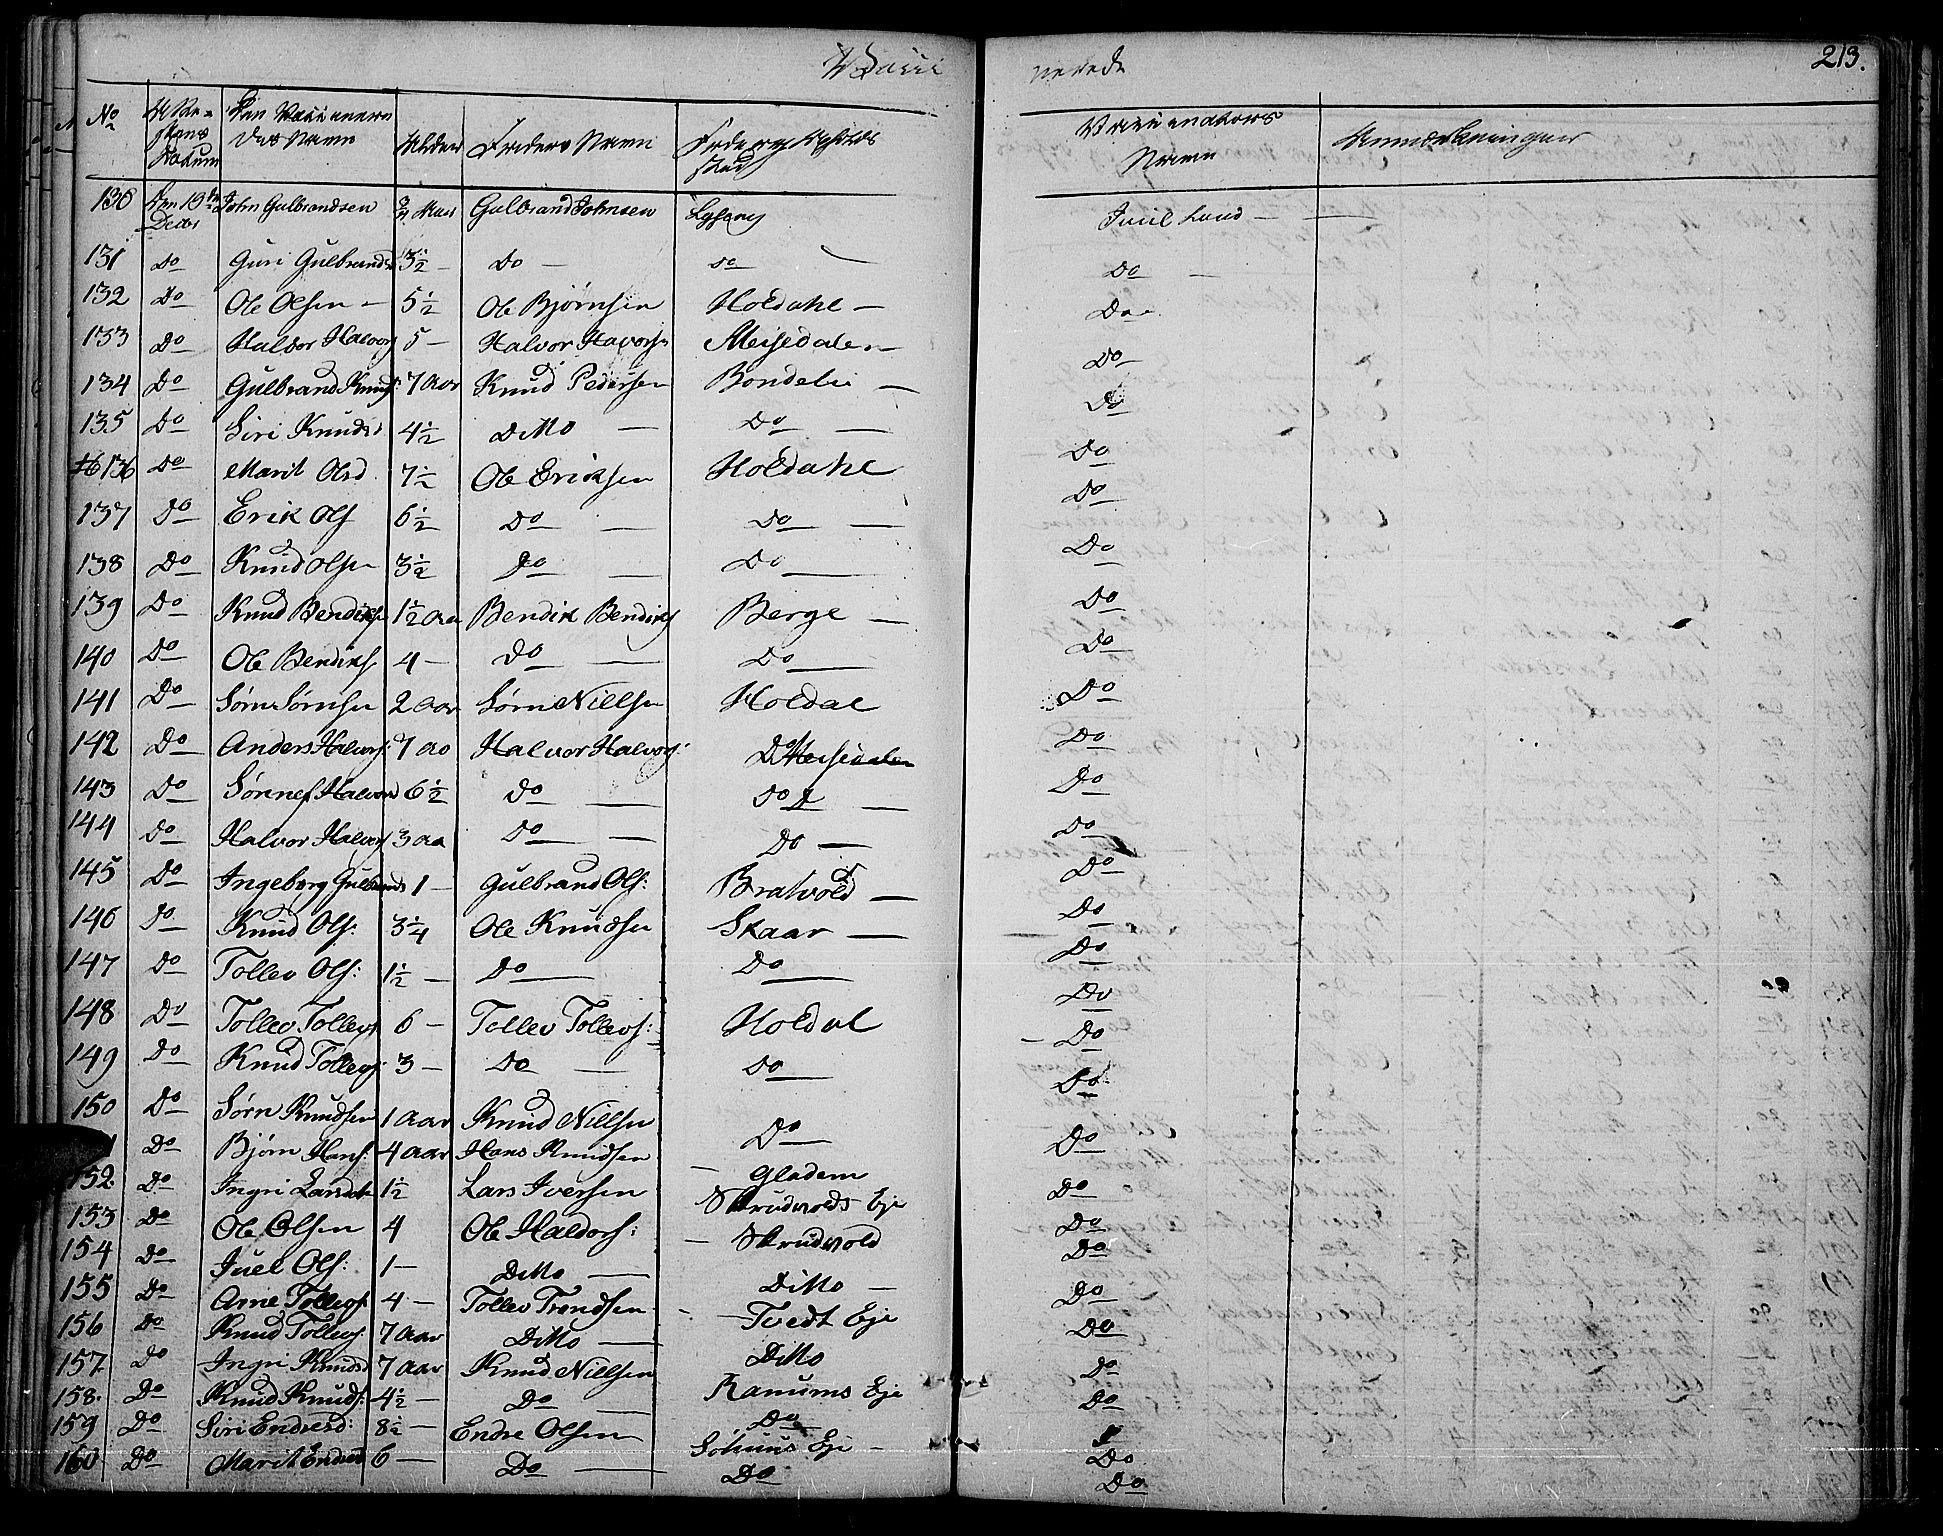 Vacci nerede 213.
No Attestens Datum Den Vaccinerendes Navn Alder Faders Navn Fødeog Opholds stæd Vaccinateurs Navn Anmærkninger
130 Den 19de Decbr John Gulbrandsen 3/4 Aar Gulbrand Johnsen Juul Lund —
131 Do Guri Gulbrands 3 1/2 — Do — Do — Do —
132 Do Ole Olsen — 5 1/2 Ole Bjørnsen Holdahl — Do
133 Do Haldor Halvors 5 — Halvor Havorsn Meisedalen — Do
134 Do Gulbrand Knuds: 7 Aar Knud Pedersen Bondelie — Do
135 Do Siri Knudsd 4 1/2 Ditto — Do — Do
136 Do Marit Olsd 7 1/2 Ole Eriksen Holdahl Do
137 Do Erik Ols 6 1/2 Do — Do — Do
138 Do Knud Olsen 3 1/2 Do — Do — Do
139 Do Knud Bendiks 1 1/2 Aar Bendik Bendiks Berge — Do
140 Do Ole Bendiks 4 — Do — Do — Do
141 Do Sørn Sørnsen 2 Aar Sørn Nielsen Holdal Do
142 Do Anders Halvors: 7 Aa Halvor Halvors: Do Meisedalen Do
143 Do Sønnef Halvord 6 1/2 Do — Do — Do
144 Do Halvor Halvors 3 Aa Do — Do — Do
145 Do Ingeborg Gulbrands 1 — Gulbrand Ols: Bratvold — Do
146 Do Knud Ols: 3 1/4 Ole Knudsen Skaar — Do
147 Do Tollev Ols: 1 1/2 — Do — Do — Do
148 Do Tollev Tollevs 6 — Tollev Tollevs: Holdal Do
149 Do Knud Tollevs: 3 — Do — Do — Do
150 Do Sørn Knudsen 1 Aar Knud Nielsen Do — Do
1 Do Bjørn Hans: 4 Aar Hans Knudsen — Gladem Do
152. Do Ingri Larsdatr 1 1/2 Lars Iversen Skrudvolds Eje Do
153 Do Ole Olsen 4 Ole Haldors: — Skrudvold Do
154 Do Juel Ols: 1 — Ditto — Ditto — Do
155 Do Arne Tollevs: 4 — Tollev Trondsen — Tvedt Eje Do
156 Do Knud Tollevs: 7 Aar Ditto — Ditto Do
157 Do Ingri Knudsd 7 Aar Knud Nielsen Ranums Eje Do
158. Do Knud Knuds: 4 1/2 — Do — Do Do
159 Do Siri Endresd: 8 1/2 — Endre Olsen Eje — Do
160 Do Marit Endresd 6 — Do — Do Do